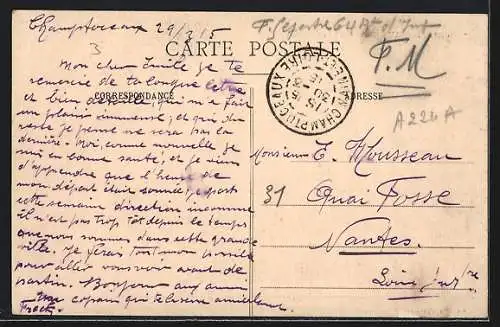 Champtoceaux 29/3/15
F. Leportre 64 Rt d'Inf
3
CARTE POSTALE
F. M
CORRESPONDANCE
ADRESSE
CHAMPTOCEAUX
MAINE-ET-LOIRE
A 224 A
Mon cher Emile Je te
remercie de ta longue lettre
et bien détaillé, qui m'a fait
un plaisir immense, et qui du
reste je pense ne sera pas la
dernière. Moi, comme nouvelle je
suis en bonne santé, et je viens
d'apprendre que l'heure de
mon départ était sonnée, je pars
cette semaine direction inconnue
il n'est pas trop tot depuis le temps
que nous sommes dans cette grande
ville. Je ferai tout mon possible
pour aller vous voir avant de
partir. Bonjour aux amis
Un copain qui te serre
Monsieur E. Mousseau
31
Quai Fosse
Nantes.
Loire Infre